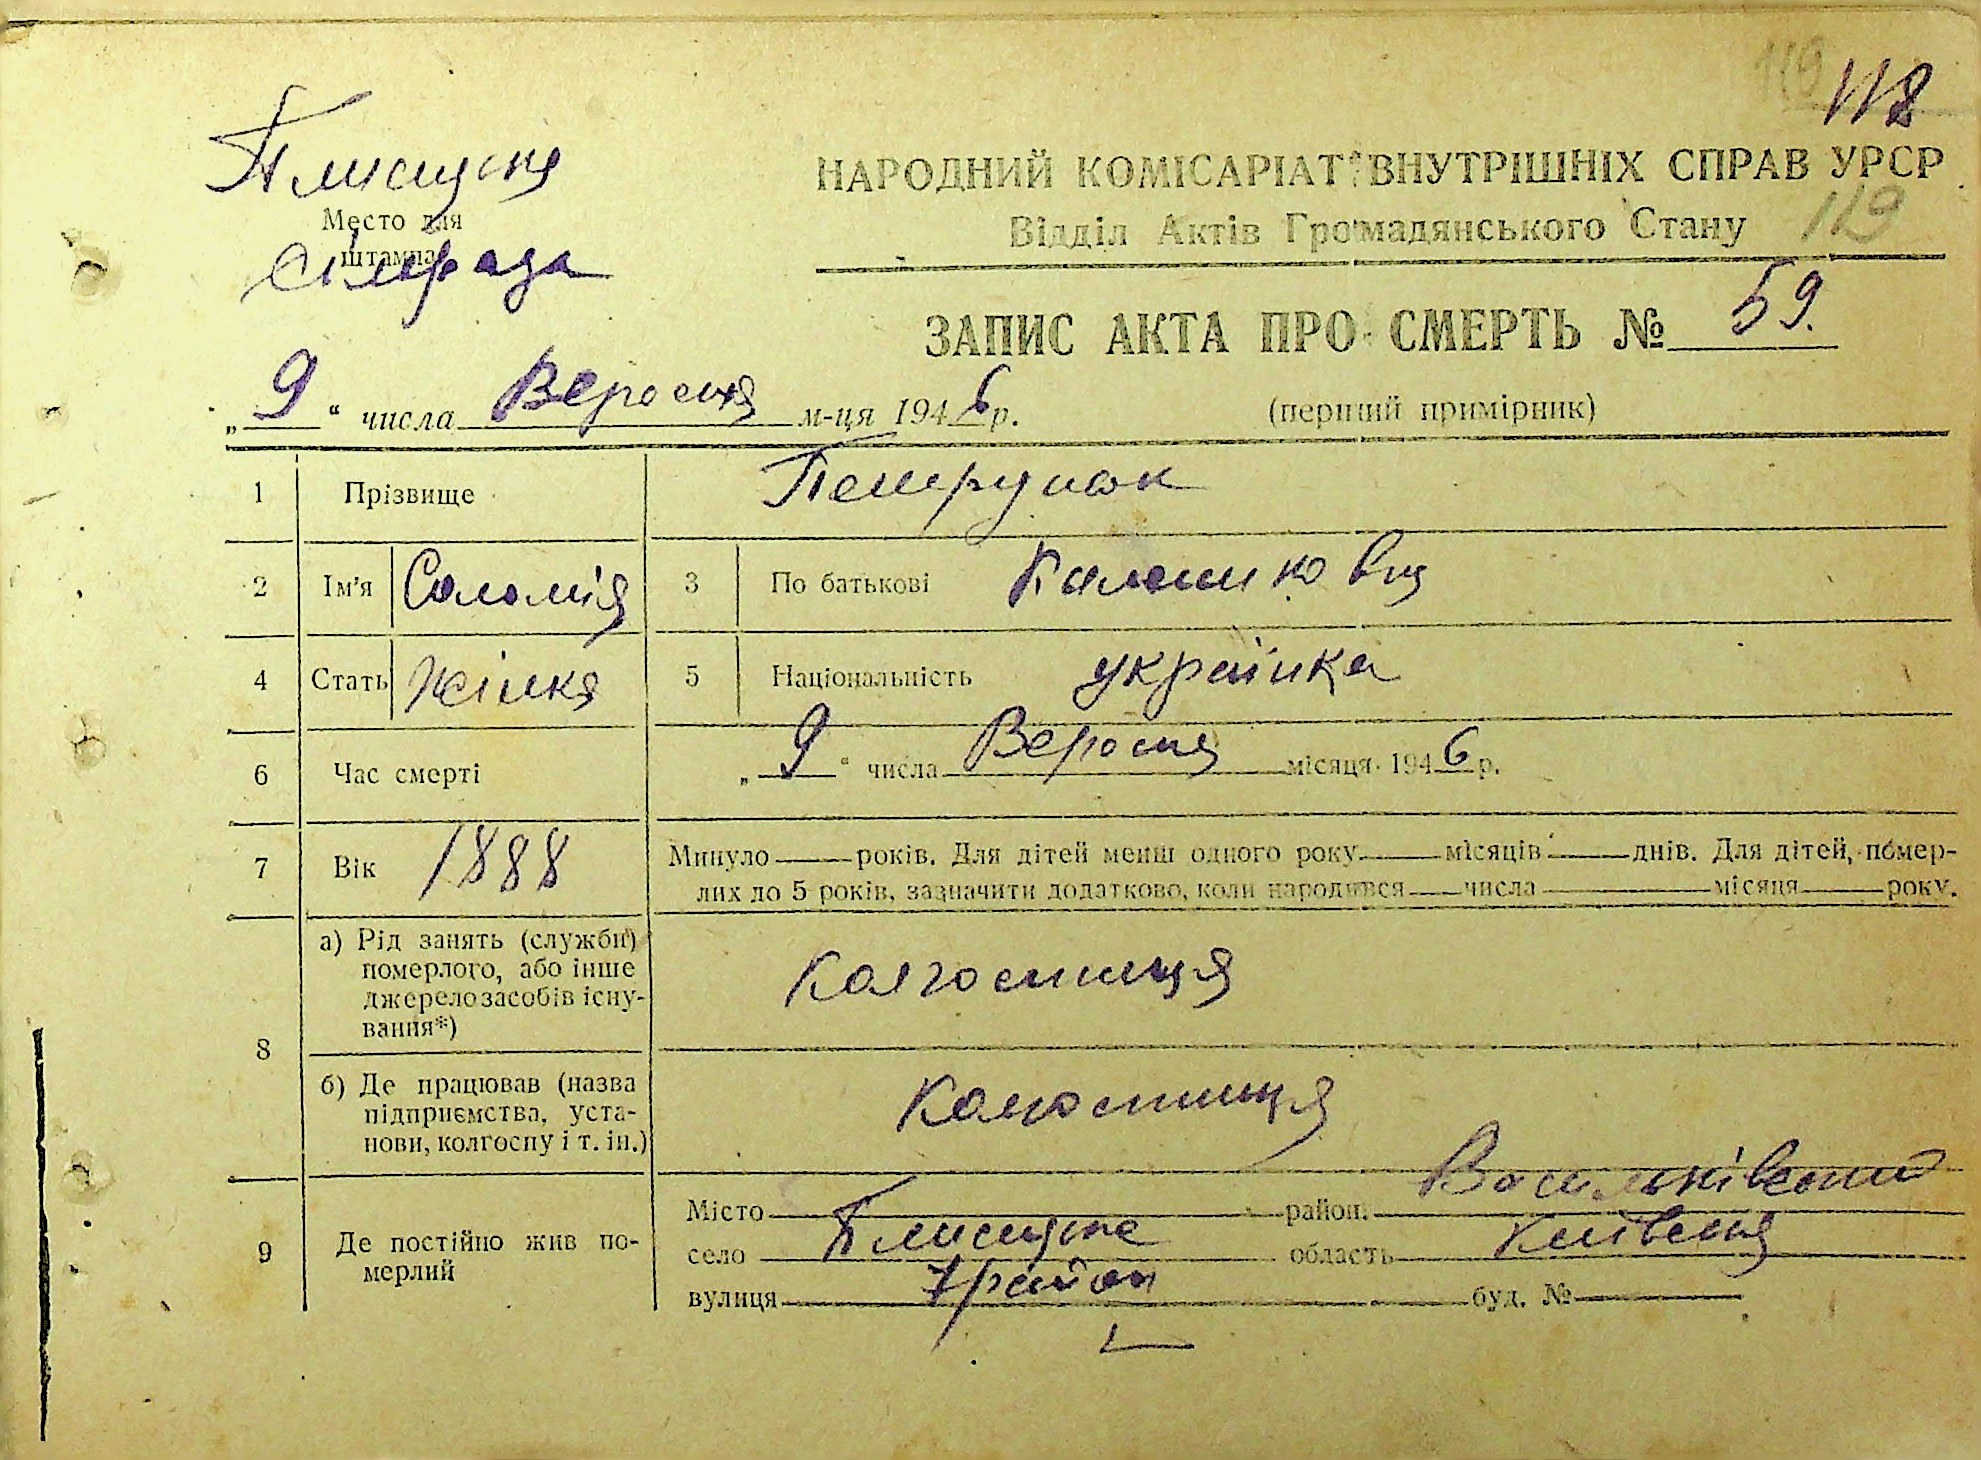 118
119
119
Плисецька
Место для
штампа
сільрада
НАРОДНИЙ КОМІСАРІАТ ВНУТРІШНІХ СПРАВ УРСР
Відділ Актів Громадянського Стану
ЗАПИС АКТА ПРО СМЕРТЬ № 59.
„ 9 “ числа Вересня м-ця 1946 р.
(перший примірник)
1 Прізвище Петрунок
2 Ім'я Соломія 3 По батькові
4 Стать жінка 5 Національність українка
6 Час смерті „ 9 “ числа Вересня місяця 1946 р.
7 Вік 1888 Минуло — років. Для дітей менш одного року — місяців — днів. Для дітей, помер-
лих до 5 років, зазначити додатково, коли народився — числа — місяця — року.
8 а) Рід занять (служби)
померлого, або інше
джерело засобів існу-
вання*)
Колгоспниця
б) Де працював (назва
підприємства, уста-
нови, колгоспу і т. ін.)
Колгоспниця
9 Де постійно жив по-
мерлий
Місто район. Васильківський
село Плисецьке область Київська
вулиця 7 район буд. №